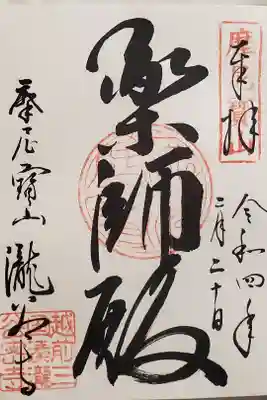 奉拝
令和四年
二月二十日
薬師殿
摩尼寶山
瀧谷寺